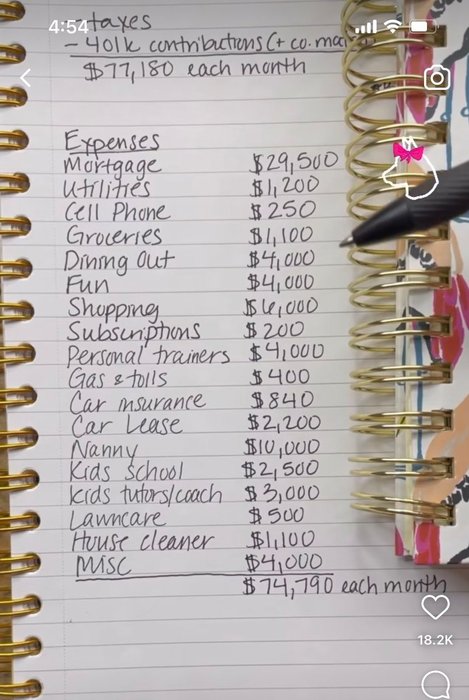 4:54
taxes
- 401k contributions (+ co. ma
$77,180 each month
Expenses
Mortgage $29,500
Utilities $1,200
Cell Phone $250
Groceries $1,100
Dining Out $4,000
Fun $4,000
Shopping $6,000
Subscriptions $200
Personal trainers $4,000
Gas & tolls $400
Car insurance $840
Car Lease $2,200
Nanny $10,000
Kids school $2,500
Kids tutors/coach $3,000
Lawncare $500
House cleaner $1,100
Misc $4,000
$74,790 each month
18.2K